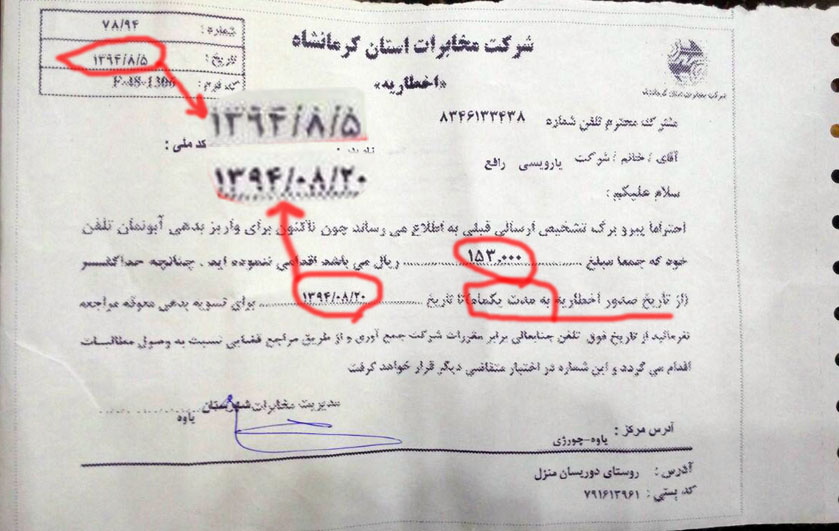 شماره : ۷۸/۹۴
تاریخ : ۱۳۹۴/۸/۵
کد فرم : F-48-1306
شرکت مخابرات استان کرمانشاه
«اخطاریه»
شرکت مخابرات استان کرمانشاه
مشترک محترم تلفن شماره ۸۳۴۶۱۳۳۴۳۸
۱۳۹۴/۸/۵
کد ملی :
آقای / خانم / شرکت یارویسی رافع
۱۳۹۴/۰۸/۲۰
سلام علیکم :
احتراما پیرو برگ تشخیص ارسالی قبلی به اطلاع می رساند چون تاکنون برای واریز بدهی آبونمان تلفن
خود که جمعا مبلغ ۱۵۳،۰۰۰ ریال می باشد اقدامی ننموده اید . چنانچه حداکثر
(از تاریخ صدور اخطاریه به مدت یکماه) تا تاریخ ۱۳۹۴/۰۸/۲۰ برای تسویه بدهی معوقه مراجعه
نفرمائید از تاریخ فوق تلفن جنابعالی برابر مقررات شرکت جمع آوری و از طریق مراجع قضایی نسبت به وصول مطالبات
اقدام می گردد و این شماره در اختیار متقاضی دیگر قرار خواهد گرفت
مدیریت مخابرات شهرستان
پاوه
آدرس مرکز : پاوه-چورژی
آدرس : روستای دوریسان منزل
کد پستی : ۷۹۱۶۱۳۹۶۱